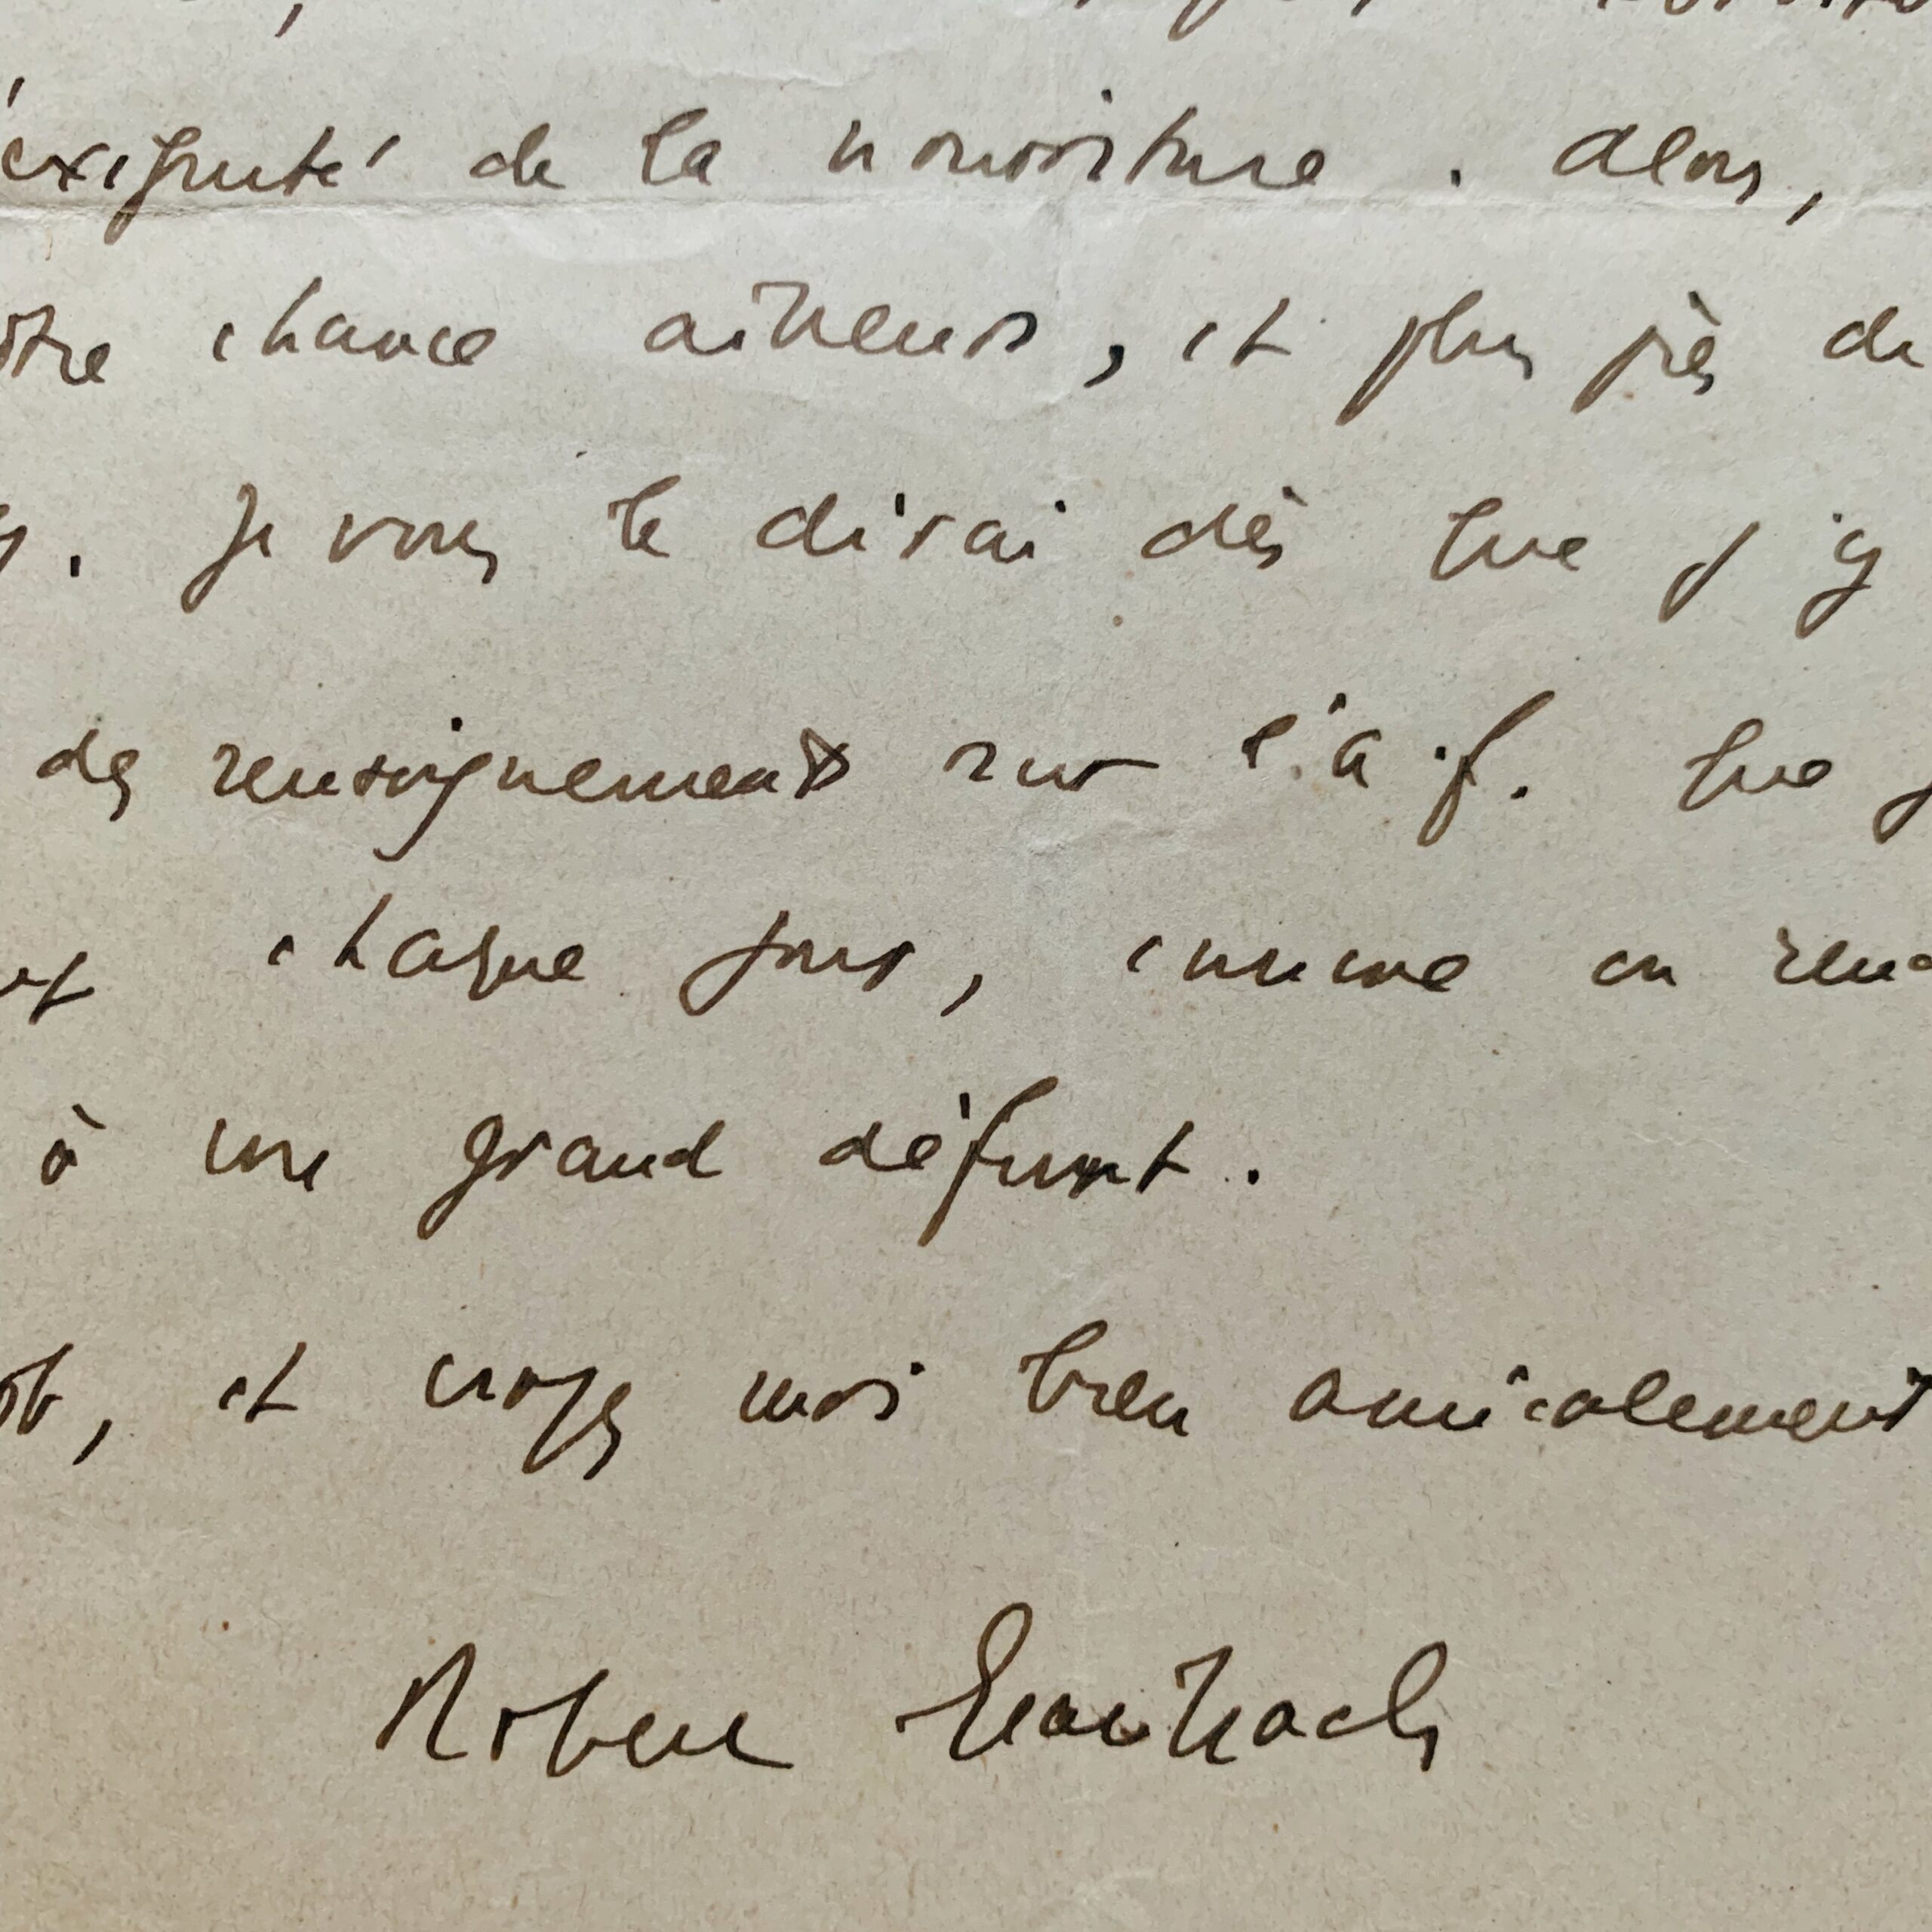 exiguité de la nourriture. Alors,
chance ailleurs, et plus près de
. Je vous le dirai dès que j'y
des renseignements sur l'A.F. que j
chaque jour, comme on
à un grand défunt.
, et croyez moi bien amicalement
Robert